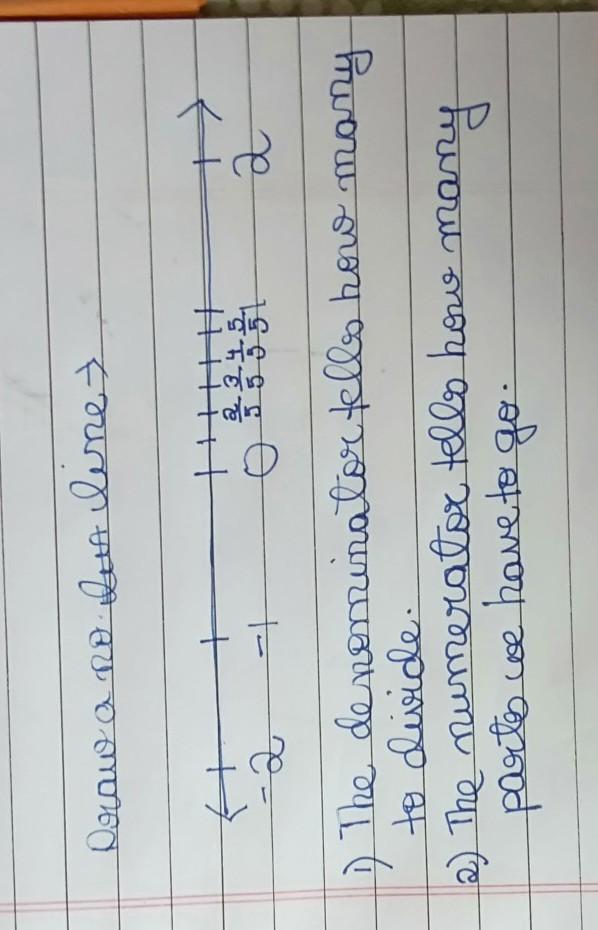 Draw a no. line →
-2 -1 0 2/5 3/5 4/5 5/5 1 2
1) The denominator tells how many
to divide.
2) The numerator tells how many
parts we have to go.